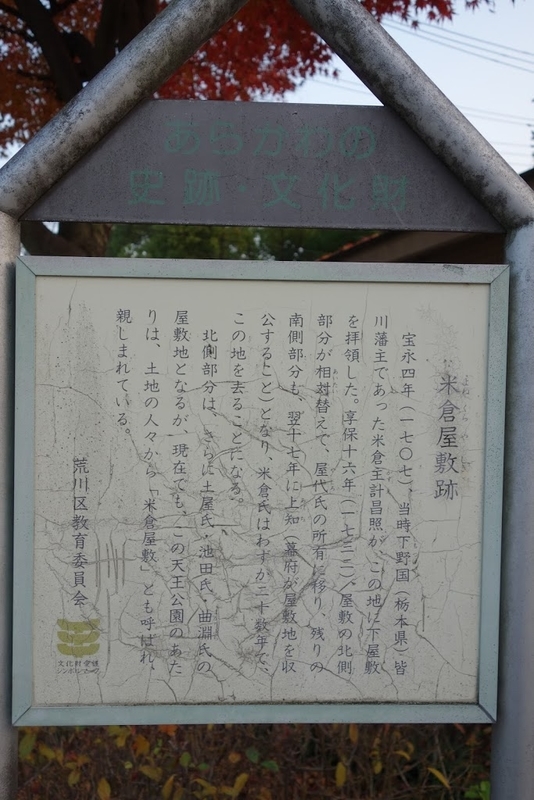 あらかわの
史跡・文化財
米倉屋敷跡
宝永四年（一七〇七）、当時下野国（栃木県）皆
川藩主であった米倉主計昌照が、この地に下屋敷
を拝領した。享保十六年（一七三一）、屋敷の北側
部分が相対替えで、屋代氏の所有に移り、残りの
南側部分も、翌十七年に上知（幕府が屋敷地を収
公すること）となり、米倉氏はわずか二十数年で、
この地を去ることになる。
北側部分は、さらに土屋氏・池田氏・曲淵氏の
屋敷地となるが、現在でも、この天王公園のあた
りは、土地の人々から「米倉屋敷」とも呼ばれ、
親しまれている。
荒川区教育委員会
文化財愛護
シンボルマーク